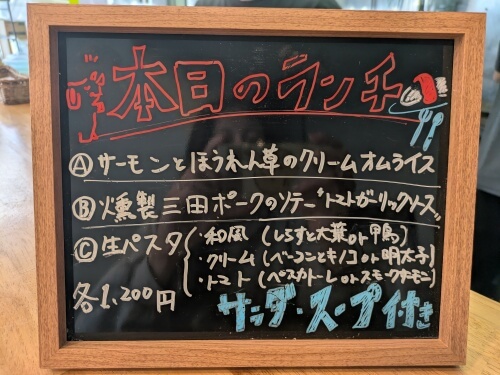 本日のランチ
Ⓐ サーモンとほうれん草のクリームオムライス
Ⓑ 燻製三田ポークのソテー"トマトガーリックソース"
Ⓒ 生パスタ
・和風(しらすと大葉or鴨)
・クリーム(ベーコンとキノコor明太子)
・トマト(ペスカトーレorスモークサーモン)
各1,200円
サラダ・スープ付き